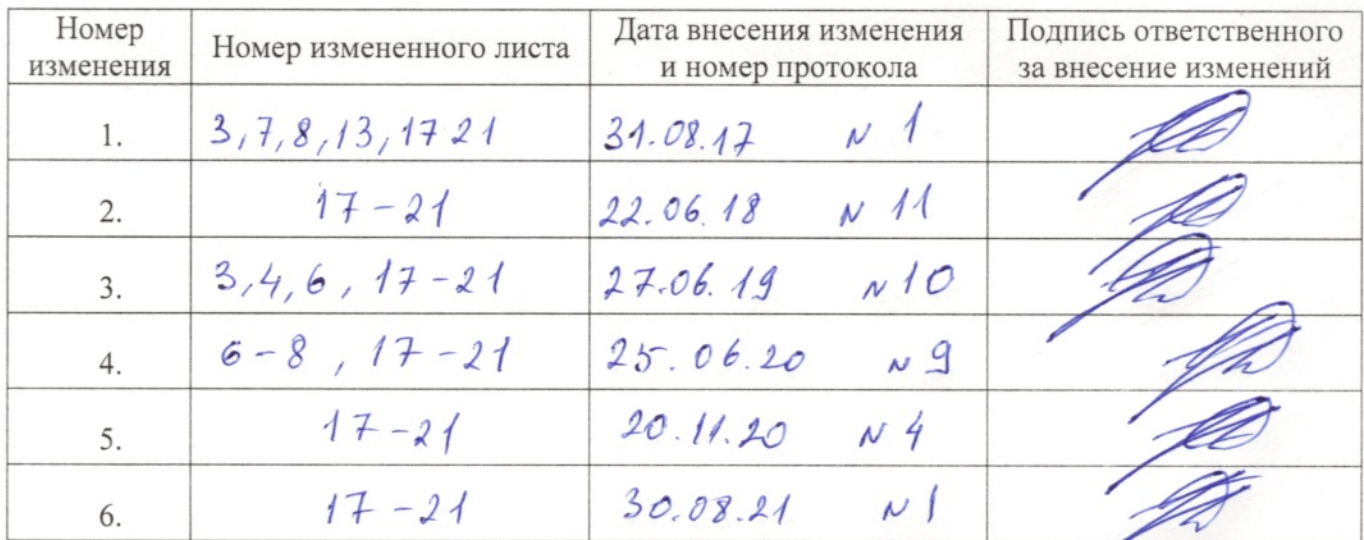 Номер изменения | Номер измененного листа | Дата внесения изменения и номер протокола | Подпись ответственного за внесение изменений
1. | 3,7,8,13,17 21 | 31.08.17 № 1
2. | 17-21 | 22.06.18 № 11
3. | 3,4,6, 17-21 | 27.06.19 № 10
4. | 6-8, 17-21 | 25.06.20 № 9
5. | 17-21 | 20.11.20 № 4
6. | 17-21 | 30.08.21 № 1